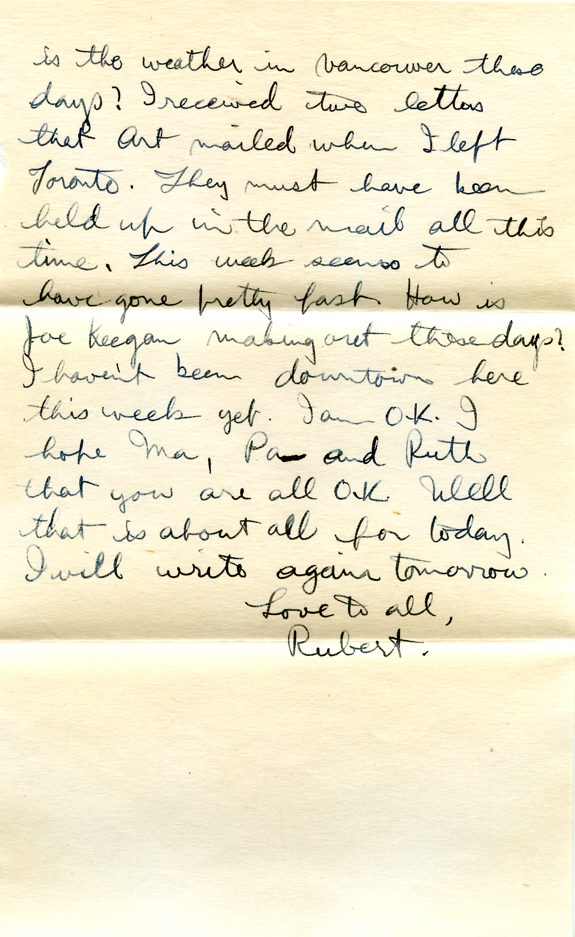 is the weather in Vancouver these
days? I received two letters
that Art mailed when I left
Toronto. They must have been
held up in the mail all this
time. This week seems to
have gone pretty fast. How is
Joe Keegan making out these days?
I haven't been downtown here
this week yet. I am O.K. I
hope Ma, Pa and Ruth
that you are all O.K. Well
that is about all for today.
I will write again tomorrow.
Love to all,
Rubert.